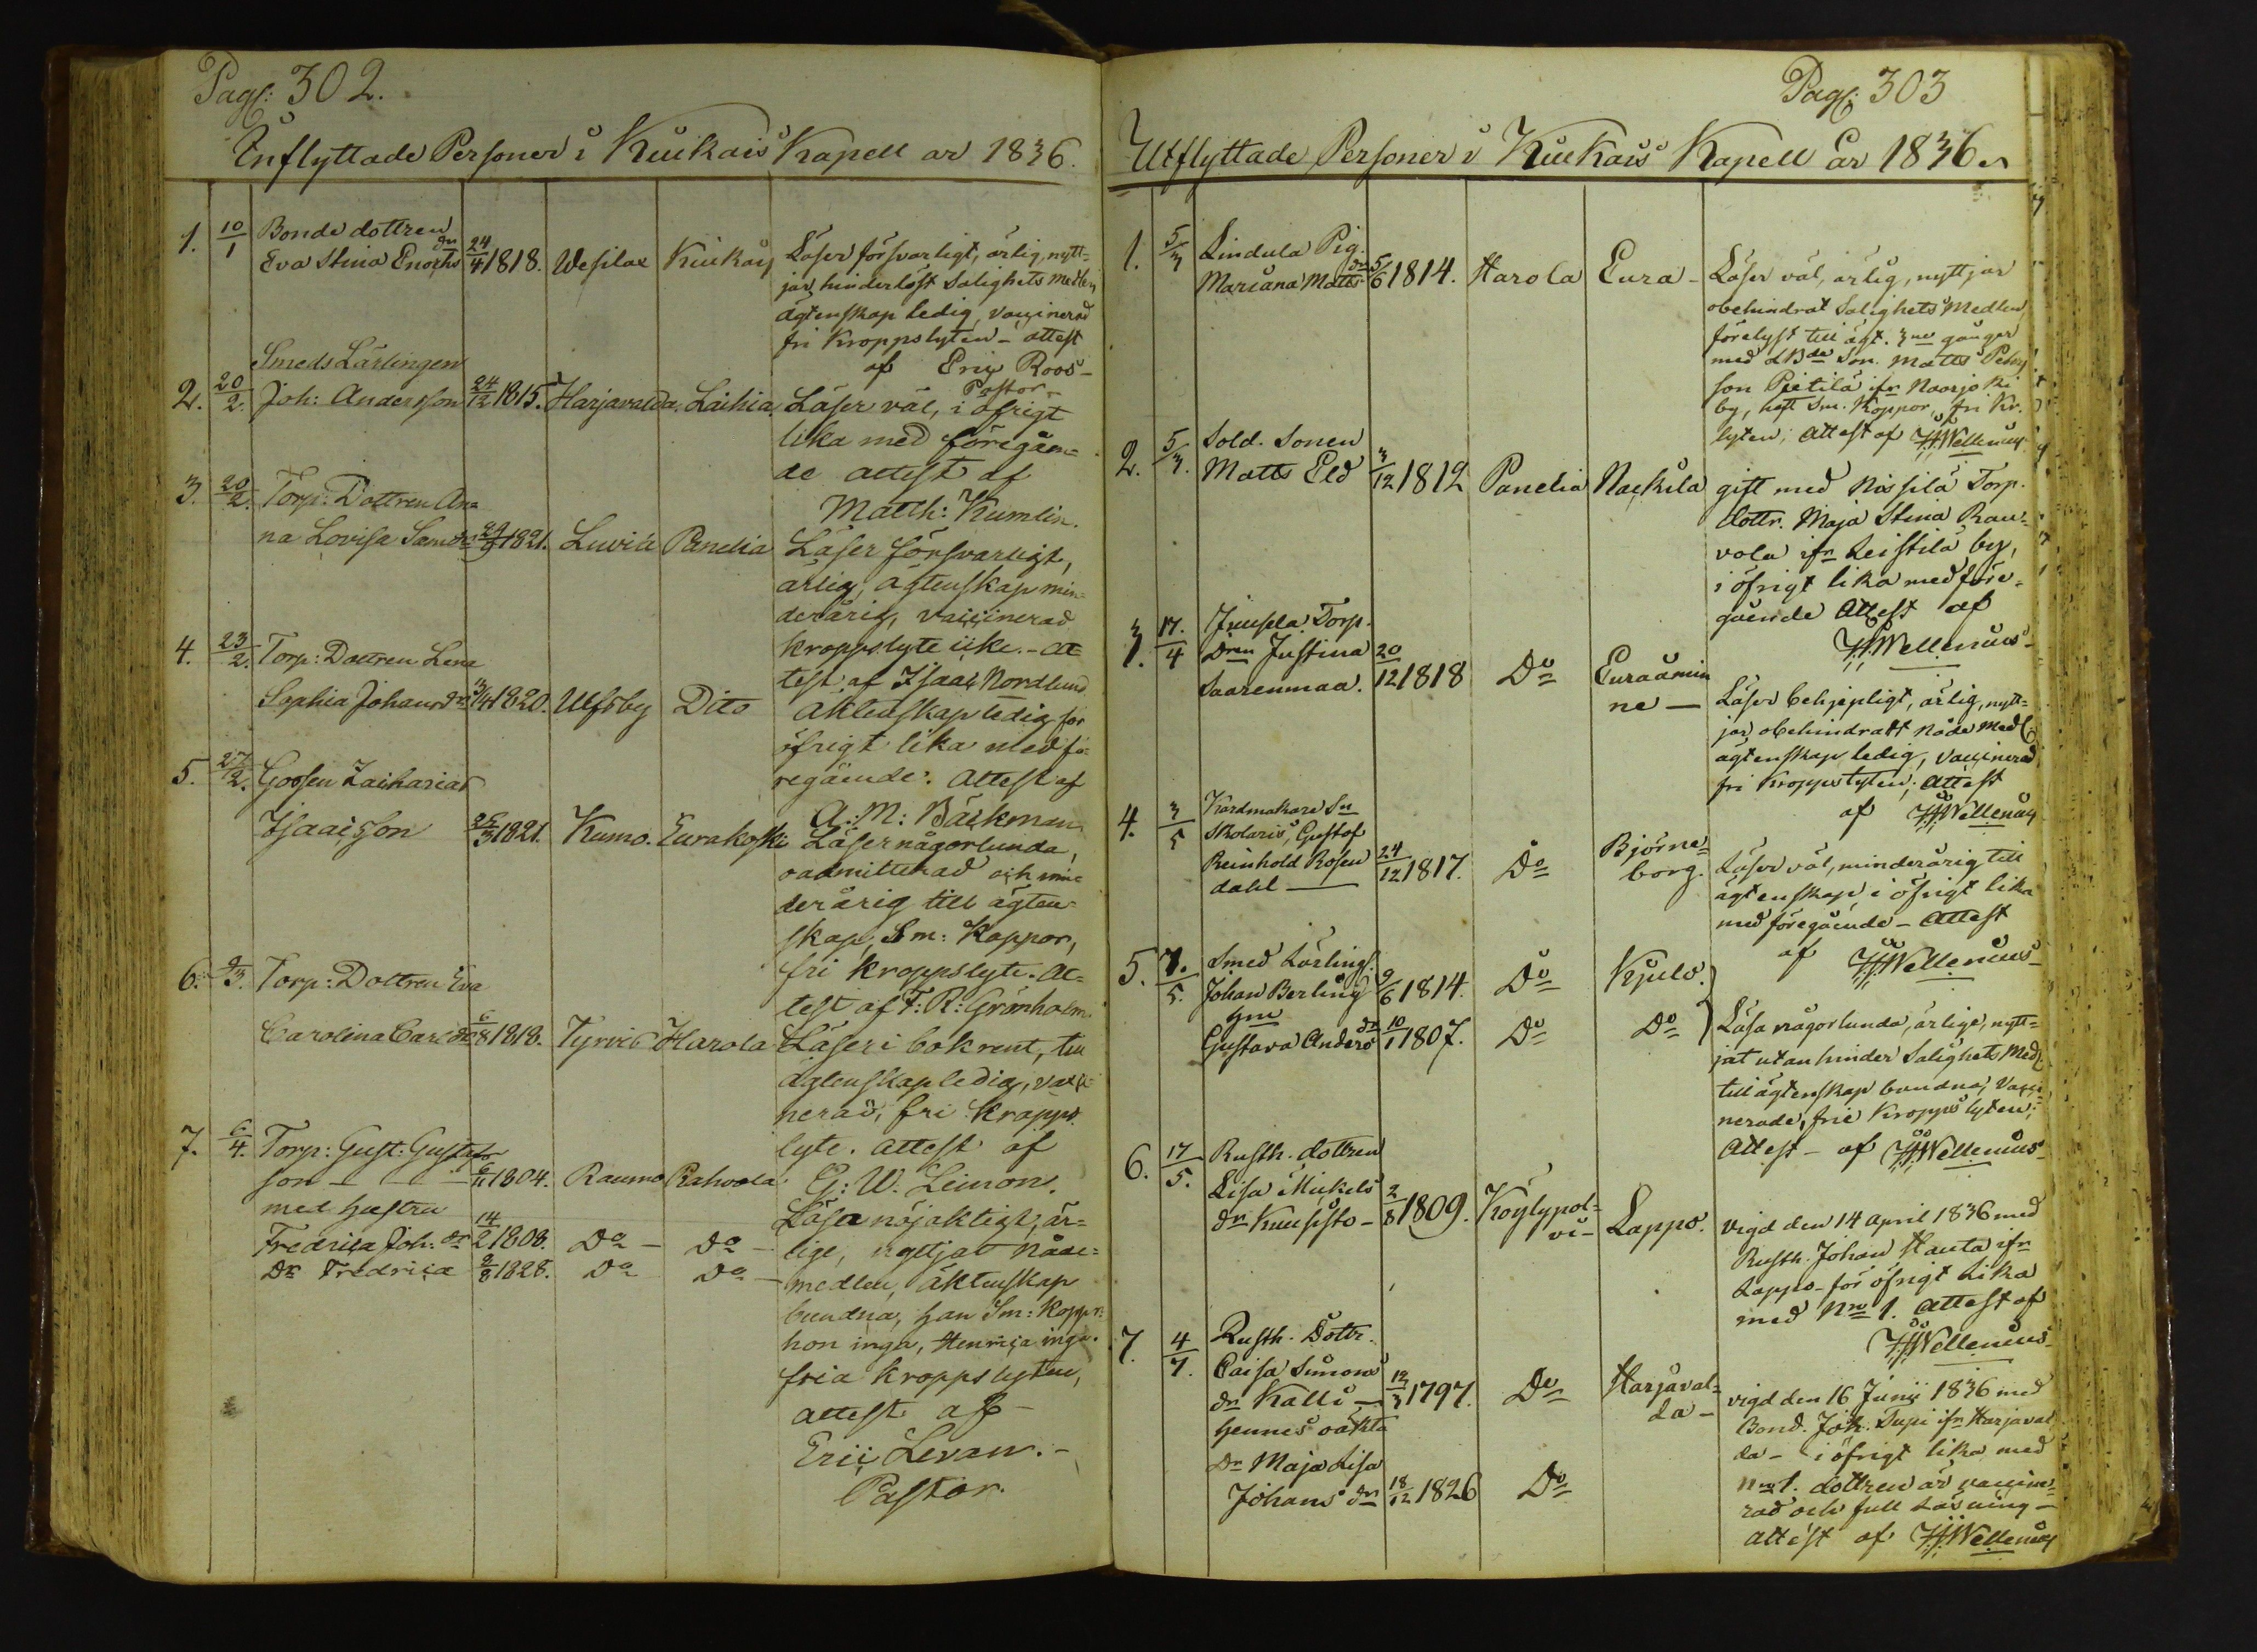 Pag: 302.
Inflyttade Personer i Kiukais Kapell år 1836.
1. 10/1 Bonde dottren
Eva Stina Enochs dr 24/4 1818. Wesilax Kiukais Läser försvarligt, ärlig, nytt-
jar hinderlöst Salighets Medlen
ägtenskap ledig, vaccinerad
fri Kroppslyten - attest
af Eric Roos -
Pastor
Smeds Lärlingen
2. 20/2. Joh: Andersson 24/12 1815. Harjavalda. Laihia Läser väl, i öfrigt
lika med föregåen-
de attest af
Matth: Kumlin.
3. 20/2. Torp: Dottren An-
na Lovisa Sam: dr 1821. Luvia Panelia Läser försvarligt,
ärlig, ägtenskap min-
derårig, vaccinerad
kroppslyte icke. - at-
test af Isaac Nordlund
4. 23/2. Torp: Dottren Lena
Sophia Johans dr 1820. Ulfsby Dito Äktenskap ledig för
öfrigt lika med fö-
regående. Attest af
A. M: Bäckman
5. 27/2. Gossen Zacharias
Isaacsson 1821. Kumo. Eurakoski Läser någorlunda,
oadmitterad och min-
derårig till ägten-
skap, Sm: Koppor,
fri kroppslyte. At-
test af F: R: Grönholm.
6. 9/3. Torp: Dottren Eva
Carolina Carls dr 6/8 1818. Tyrvis Harola Läser i bok rent, till
ägtenskap ledig, vacci-
nerad, fri kropps
lyte. attest af
G: W. Limon.
7. 6/4. Torp: Gust: Gustafs
son - - - 6/11 1804. Raumo Rahvola
med hustru Läsa nöjaktigt, är-
Fredrica Joh: dr 14/2 1808. Do - Do - lige, nyttjat nåde-
Dr Fredrica 9/8 1828. Do Do - medlen, äktenskap
bundna, han Sm: Koppr:
hon inga, Henrica inga.
fria kroppslyten,
attest af -
Eric Levan. -
Pastor.
Pag: 303
Utflyttade Personer i Kiukais Kapell år 1836.
1. 5/3 Lindula Pig.
Mariana Matts dr 5/6 1814. Harola Eura - Läser väl, ärlig, nyttjar
obehindrat Salighets Medlen
förelyst till ägt. 3ne gånger
med dBde Son. Matts Peters
son Pietilä ifr Naarjoki
by, haft Sm. Koppor, fri Kr.
lyten; Attest af JHWellenius
2. 5/3. Sold. Sonen
Matts Eld 3/12 1812 Panelia Nackila gift med Nissilä Torp.
dottr. Maja Stina Rau-
vola ifr Leistilä by,
i öfrigt lika med före-
gående Attest af
JHWellenius -
3. 17/4 Juusela Torp.
Dren Justina
Saarenmaa. 20/12 1818 Do Euraåmin
ne - Läser behjepligt, ärlig, nytt-
jar obehindratt Nåde Medl
ägtenskap ledig, vaccinerad
fri Kroppslyten; Attest
af JHWellenius
4. 3/5 Kardmakare Sn
Skolaris, Gustaf
Reinhold Rosen
dahl - 24/12 1817. Do Björne-
borg. Läser väl, minderårig till
ägtenskap, i öfrigt lika
med föregående - Attest
af JHWellenius -
5. 7/5. Smed Lärling.
Johan Berling 9/6 1814. Do Kjulo.
Hm
Gustava Anders dr 10/1 1807. Do Do Läsa någorlunda, ärlige, nytt-
jat utan hinder Salighets Med:
till ägtenskap bundna, Vacci-
nerade, frie Kropps lyten;
Attest - af JHWellenius -
6. 17/5. Rusth. dottren
Lisa Mickels
dr Kuusisto - 2/8 1809. Köylypol-
vi - Lappo. Vigd den 14 April 1836 med
Rusth. Johan Hauta ifr
Lappo - för öfrigt lika
med Nro 1. Attest af
JHWellenius -
7. 4/7. Rusth. Dottr.
Caisa Simons
dr Kalli - 12/3 1797. Do Harjaval-
da - vigd den 16 Junii 1836 med
Hennes oäkta Bond. Joh. Tupi ifr Harjaval
Dr Maja Lisa da - i öfrigt lika med
Johans dr 18/12 1826 Do Nro 1. dottren är vaccine-
rad och full Läsning -
attest af JHWellenius